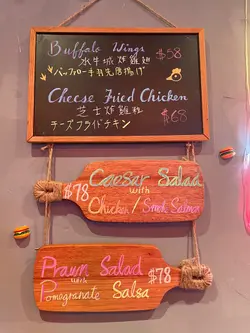 Buffalo Wings $58
水牛城炸雞翅
バッファロー手羽先唐揚げ
Cheese Fried Chicken
芝士炸雞粒 $68
チーズフライドチキン
Caesar Salad
$78 with
Chicken / Smok Salmon
Prawn Salad
with $78
Pomegranate Salsa